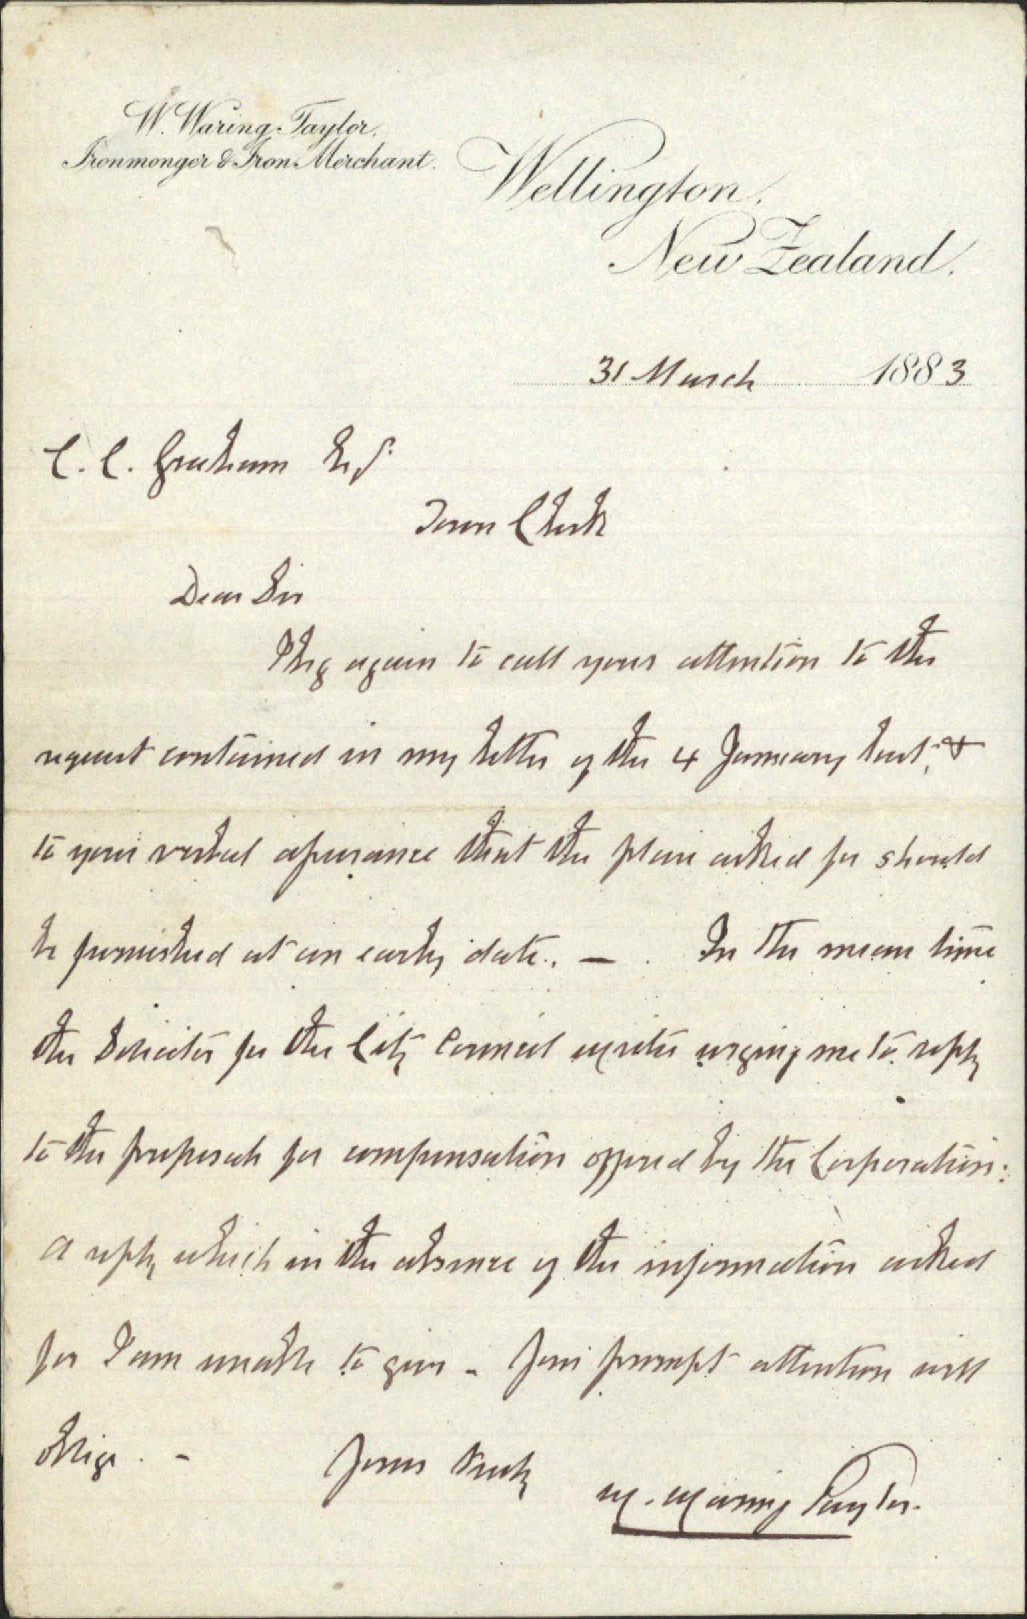 W. Waring Taylor.
Ironmonger & Iron Merchant.
Wellington.
New Zealand.
31 March 1883
C. C. Graham Esqr.
Town Clerk
Dear Sir
I beg again to call your attention to the
request contained in my letter of the 4 January last; &
to your verbal assurance that the plan asked for should
be furnished at an early date. — . In the mean time
the Solicitor for the City Council writes urging me to reply
to the proposals for compensation offered by the Corporation:
a reply which in the absence of the information asked
for I am unable to give - Your prompt attention will
oblige . -
Yours truly
W. Waring Taylor.